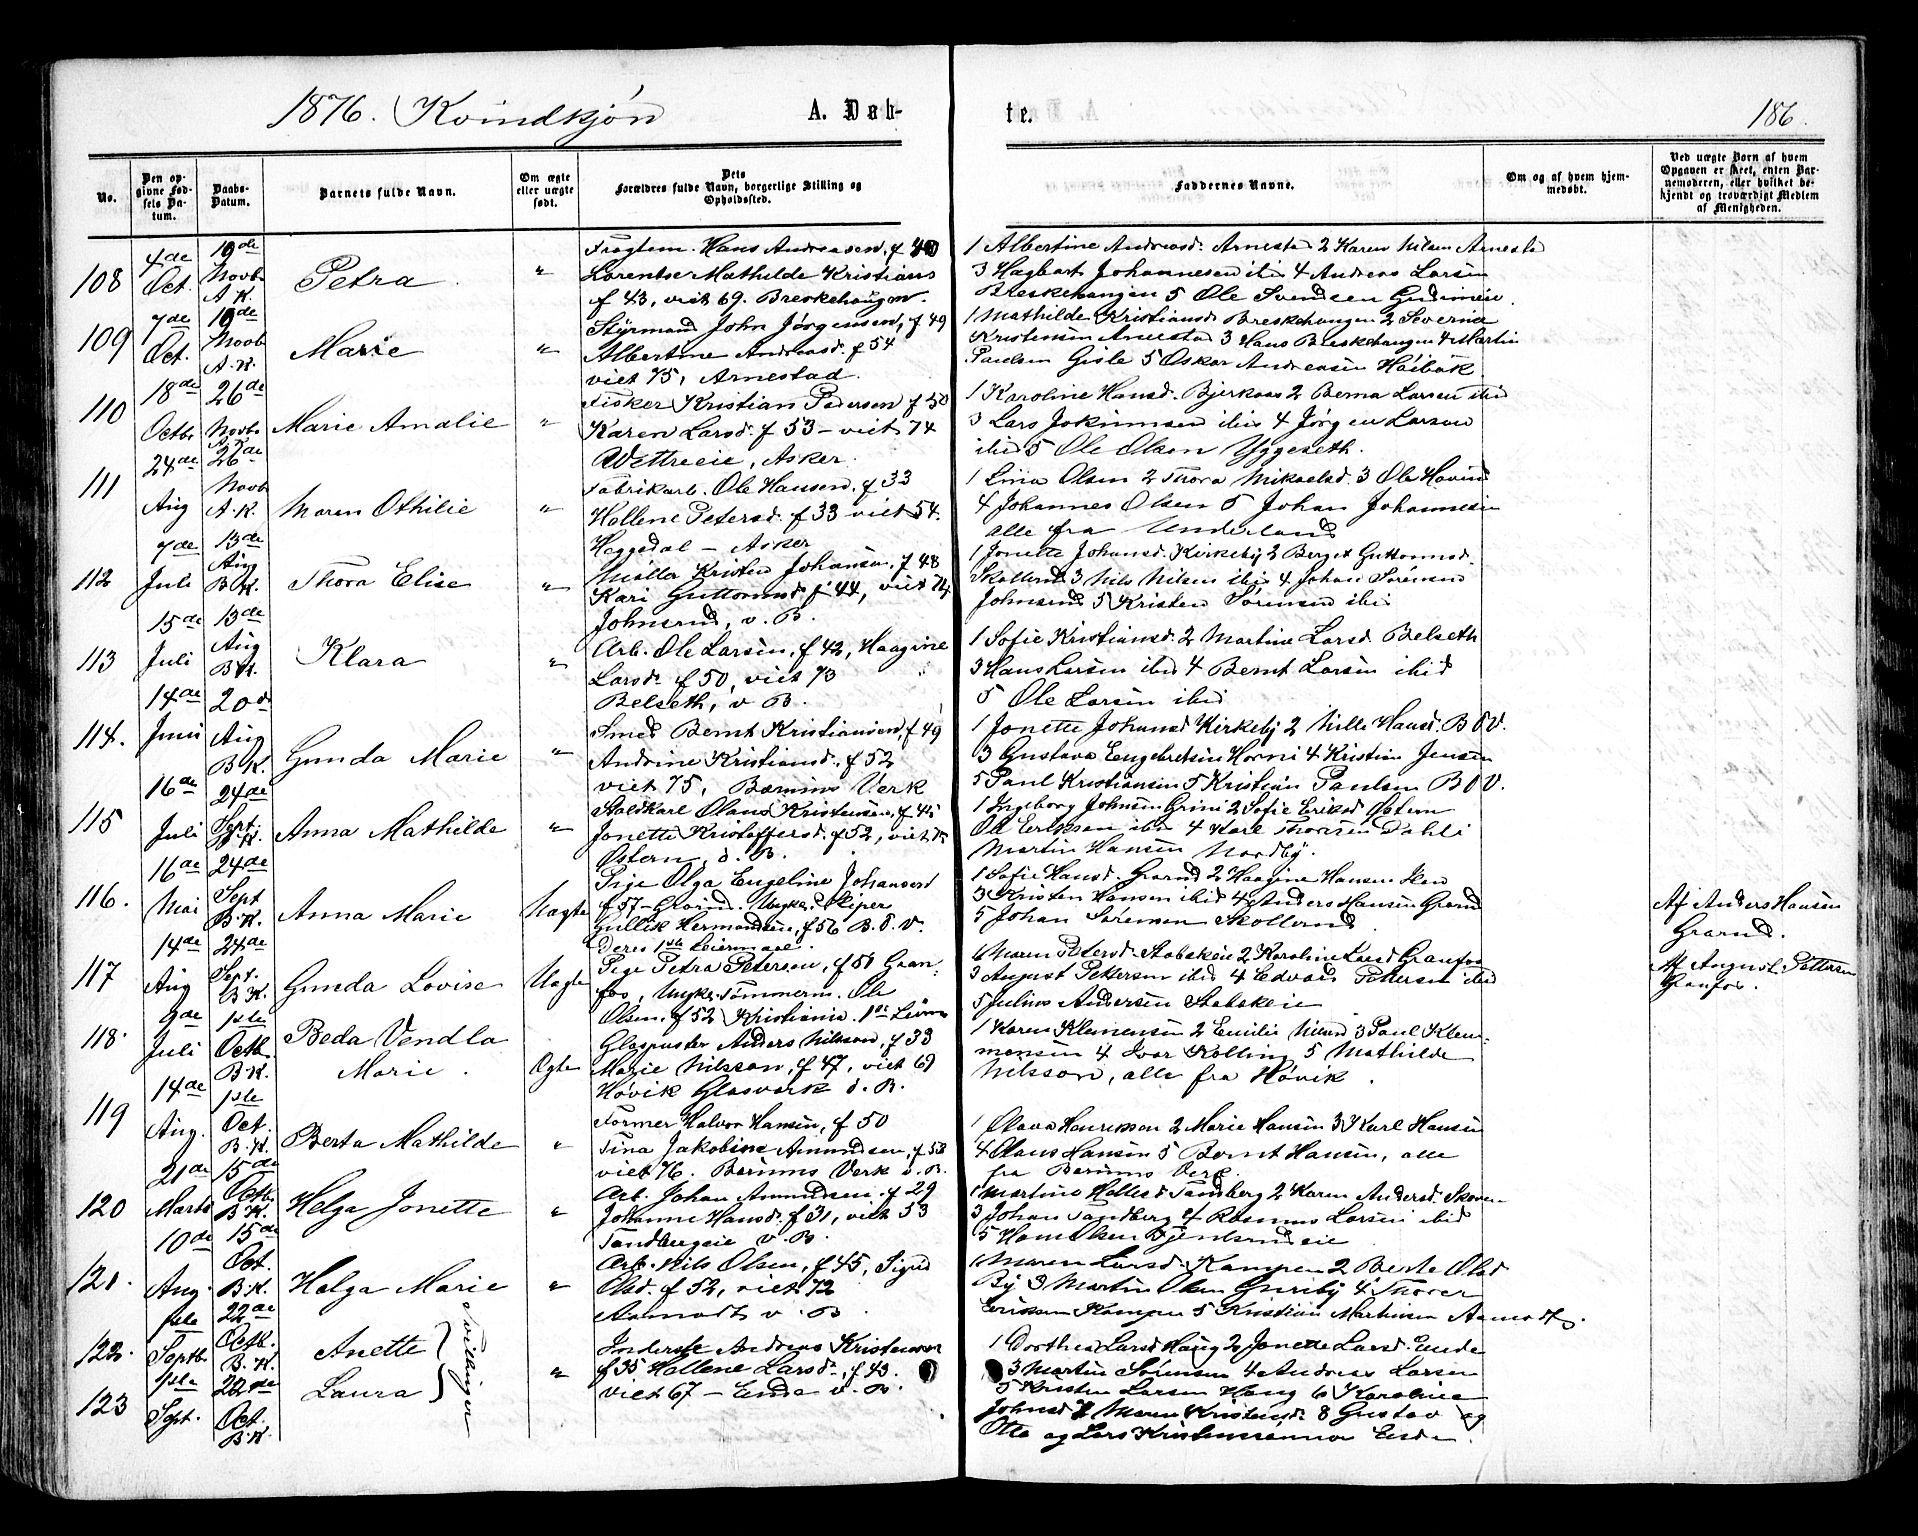 1876. Kvindkjøn
A. Døb-
te.
186.
No.
Den op-
givne Fød-
sels Da-
tum.
Daabs-
Datum.
Barnets fulde Navn.
Om ægte
eller uægte
født.
Dets
Forældres fulde Navn, borgerlige Stilling og
Opholdssted.
Faddernes Navne.
Om og af hvem hjem-
medøbt.
Ved uægte Børn af hvem
Opgaven er skeet, enten Bar-
nemoderen, eller hvilket be-
kjendt og troværdigt Medlem
af Menigheden.
108
4de
Oct.
19de
Novb.
A.K.
Petra
"
Hans Andreasen, f 40
Lorentse Mathilde Kristians
f 43, viet 69. Breskehaugen.
1 Albertine Andreasd. Arnestad 2 Karen Nilsen Arnestad
3 Hagbart Johannesen ibid 4 Andreas Larsen
Breskehaugen 5 Ole Svendsen
109
7de
Oct.
19de
Novb
A.K.
Marie
"
Styrmand John Jørgensen, f 49
Albertine Andreasd. f 54
viet 75, Arnestad.
1 Mathilde Kristiansd Breskehaugen 2 Severine
Kristensen Arnestad 3 Hans Breskehaugen 4 Martin
Paulsen Gisle 5 Oskar Andreasen Høibak
110
18de
Octbr
26de
Novbr
A.K.
Marie Amalie
"
Fisker Kristian Pedersen f 50
Karen Larsd. f 53 - viet 74
Vettreeie, Asker.
1 Karoline Hansd. Bjerkaas 2 Berna Larsen ibid
3 Lars Jokumsen ibid 4 Jørgen Larsen
ibid 5 Ole Olsen Yggeseth.
111
24de
Aug
26de
Novb
A.K.
Maren Othilie
"
Fabrikarb. Ole Hansen. f 33
Hellene Petersd. f 33 viet 54.
Heggedal - Asker
1 Lina Olsen 2 Thora Mikaelsd. 3 Ole Hovind
4 Johannes Olsen 5 Johan Johannesen
alle fra Underland
112
7de
Juli
13de
Aug
B.K.
Thora Elise
"
Møller Kristen Johansen, f 48
Kari Guttormsd f 44, viet 74
Johnsrud, v. B.
1 Jonette Johansd. Kirkeby 2 Berget Guttormsd.
Skollerud 3 Nils Nilsen ibid 4 Johan Sørensen
Johnsrud 5 Kristen Sørensen ibid
113
15de
Juli
13de
Aug
B.K.
Klara
"
Arb. Ole Larsen, f 42, Haagine
Larsd. f 50, viet 73
Belseth, v B.
1 Sofie Kristiansd. 2 Martine Larsd Belseth
3 Hans Larsen ibid 4 Bernt Larsen ibid
5 Ole Larsen ibid
114.
14de
Juni
20de
Aug
B.K.
Gunda Marie
"
Smed Bernt Kristiansen, f 49
Andrine Kristiansd. f 52
viet 75, Bærums Verk
1 Jonette Johansd Kirkeby 2 Mille Hansd. B.V.
3 Gustava Engebretsen Horni 4 Kristian Jensen
5 Paul Kristiansen 5 Kristian Paulsen B.V.
115
16de
Juli
24de
Sept.
B.K.
Anna Mathilde
"
Staldkarl Olaus Kristensen, f 45
Jonette Kristoffersd. f 52, viet
Østern, ø. B.
1 Ingeborg Johnsen Grini 2 Sofie Eriksd Østern
Ole Eriksen ibid 4 Karl Thoresen Dahli
Martin Hansen Nordby.
116.
16de
Mai
24de
Sept
B.K.
Anna Marie
Uægte
Pige Olga Engeline Johansen
f 57 - Ungk. Skiper
Gullik Hermandsen, f 56 B.V.
Deres 1ste Leiermaal.
1 Sofie Hansd. 2 Haagine Hansen
3 Kristen Hansen ibid 4 Anders Hansen
5 Johan Sørensen Skollerud
Af Anders Hansen
117
14de
Aug
24de
Sept.
B.K.
Gunda Lovise
Uægte
Pige Petra Petersen, f 51 Gran-
fos, Ungk. Tømmerm. Ole
Olsen. f 52 Kristiania. 1ste
Maren Petersd. Stabekeie 2 Karoline Larsd Granfos
3 August Pettersen ibid 4 Edvard Pettersen ibid
5 Julius Andersen Stabekeie
Af August Pettersen
Granfos.
118.
9de
Juli
1ste
Octb.
B.K.
Beda Vendla
Marie.
Ægte
Glaspuster Anders Nilsson, f 33
Marie Nilsson, f 47, viet 69
Høvik Glasværk ø. B.
1 Karen Klemensen 2 Emilie 3 Paul Klem-
mensen 4 Ivar Kolling 5 Mathilde
Nilsson, alle fra Høvik.
119
14de
Aug.
1ste
Oct.
B.K.
Berta Mathilde
"
Former Halvor Hansen, f 50
Tina Jakobine Amundsen, f 53
viet 76. Bærums Verk v. B.
1 Olava Henriksen 2 Marie Hansen 3 Karl Hansen
4 Olaus Hansen 5 Bernt Hansen, alle
fra Bærums Verk.
120
21de
Marts
15de
Octb.
B.K.
Helga Jonette
"
Arb. Johan Amundsen. f 29
Johanne Hansd. f 31, viet 53
Tandbergeie v. B.
1 Martine Hellesd Tandberg 2 Karen Andersd.
3 Johan Tandberg 4 Rasmus Larsen ibid
5 Hans Olsen
121.
10de
Aug.
15de
Oct.
B.K.
Helga Marie
"
Arb. Nils Olsen, f 45, Sigrid
Olsd. f 52, viet 72
Aamodt v. B
1 Maren Larsd. Kampen 2 Berte Olsd
By 3 Martin Olsen 4 Thorer
Eriksen Kampen 5 Kristian Martinsen Aamodt.
122.
1ste
Septb.
22de
Octb.
B.K.
Anette
Tvillinger
"
Inderste Andreas Kristensen
f 35 Hellene Larsd., f 43.
viet 67 - Endæ v. B.
1 Dorthea Larsd Haug 2 Jonette Larsd. Endæ
3 Martin Sørensen 4 Andreas Larsen
5 Kristen Larsen Haug 6 Karoline
Johnsd 7 Maren Kristensd. 8 Gustav og
Otto og Lars Kristenssønner Endæ.
123
1ste
Sept.
22de
Oct.
B.K.
Laura